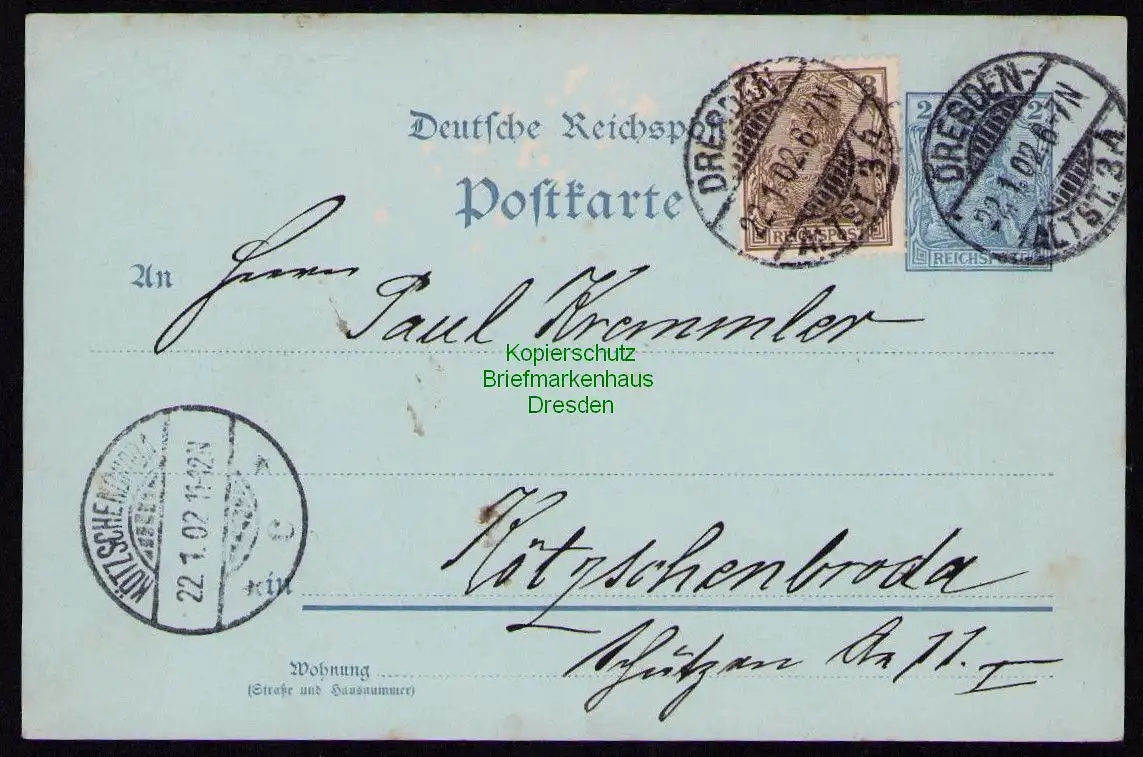 Deutsche Reichspost
Postkarte
3
REICHSPOST
DRESDEN
22.1.02.6-7N
ALTST. 3 h
2
REICHSPOST
DRESDEN-
22.1.02.6-7N
ALTST. 3 h
An
Herrn
Paul Kremmler
Kopierschutz
Briefmarkenhaus
Dresden
KÖTZSCHENBRODA
22.1.02 11-12N
c
in
Kötzschenbroda
Wohnung
(Straße und Hausnummer)
Schützen 11. I